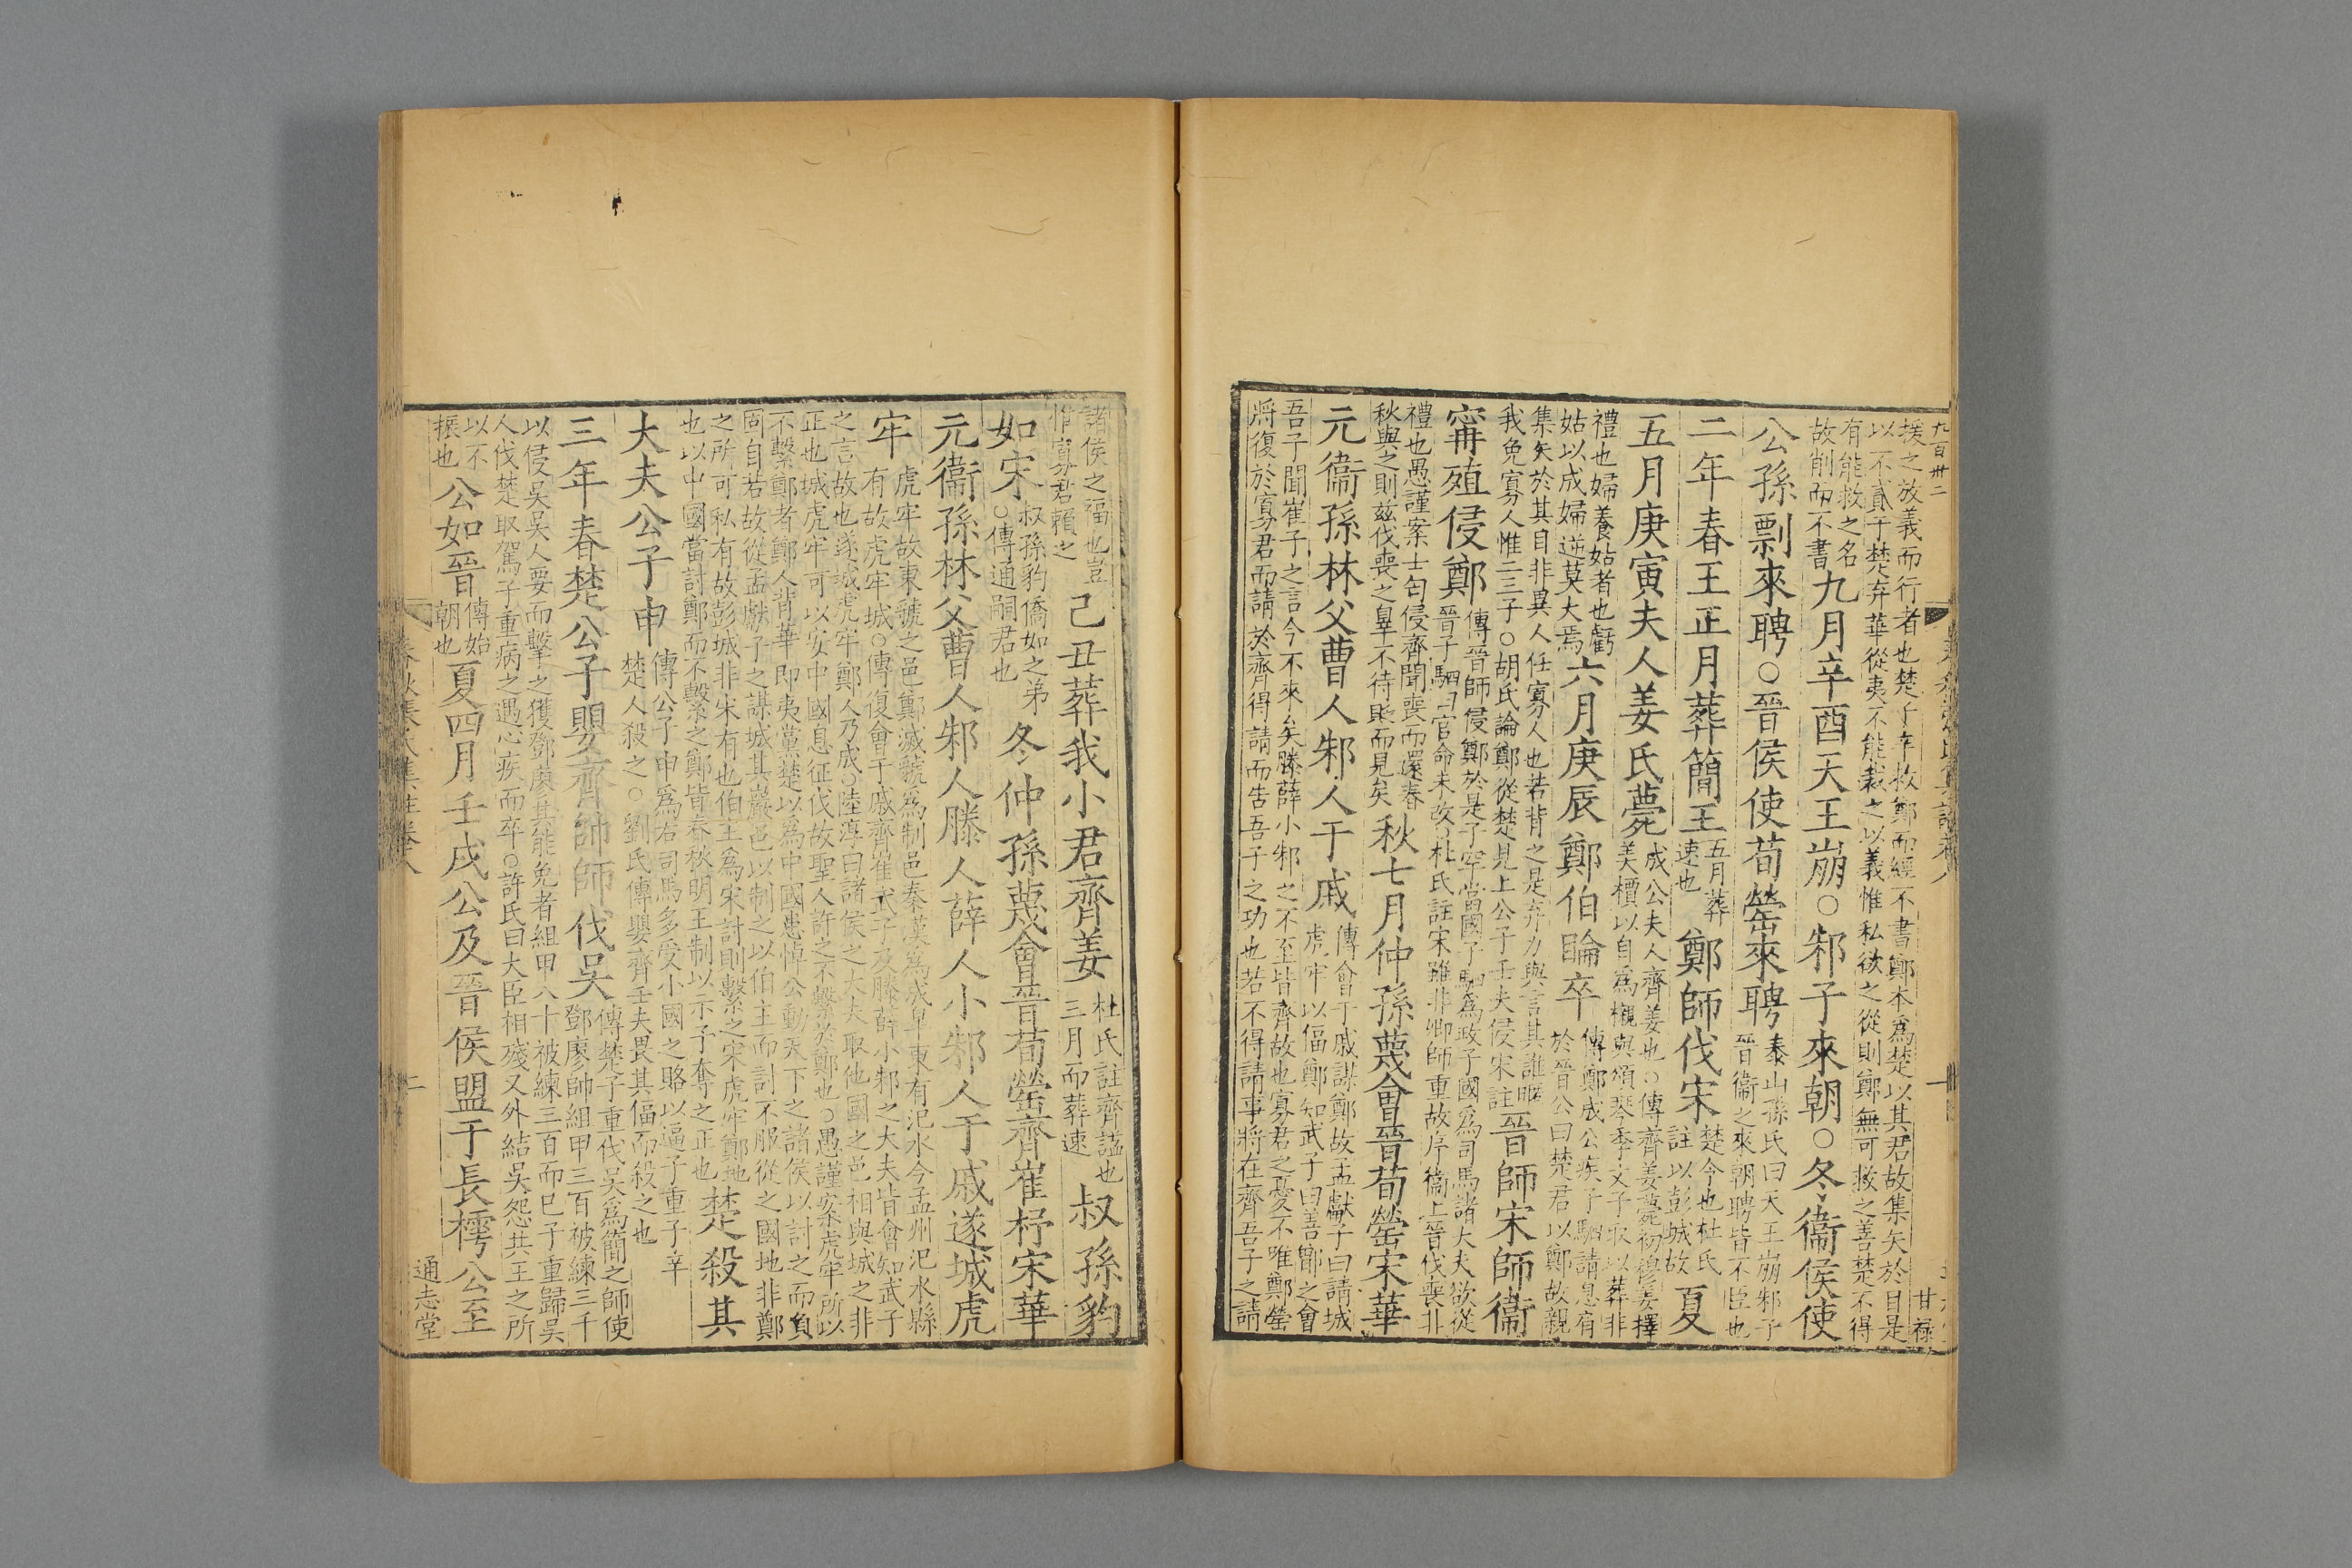 九百卅二
甘祿
援之放義而行者也楚子辛救鄭而經不書鄭本爲楚以其君故集矢於目是
以不貳于楚弃華從夷不能裁之以義惟私欲之從則鄭無可救之善楚不得
有能救之名
故削而不書
九月辛酉天王崩○邾子來朝○冬衞侯使
公孫剽來聘○晉侯使荀罃來聘
泰山孫氏曰天王崩邾子
晉衞之來朝聘皆不臣也
二年春王正月葬簡王
五月葬
速也
鄭師伐宋
楚令也杜氏
註以彭城故
夏
五月庚寅夫人姜氏薨
成公夫人齊姜也○傳齊姜薨初穆姜擇
美檟以自爲櫬與頌琴季文子取以葬非
禮也婦養姑者也虧
姑以成婦逆莫大焉
六月庚辰鄭伯睔卒
傳鄭成公疾子駟請息肩
於晉公曰楚君以鄭故親
集矢於其目非異人任寡人也若背之是弃力與言其誰暱
我免寡人惟二三子○胡氏論鄭從楚見上公子壬夫侵宋註
晉師宋師衞
甯殖侵鄭
傳晉師侵鄭於是子罕當國子駟爲政子國爲司馬諸大夫欲從
晉子駟曰官命未改○杜氏註宋雖非卿師重故序衞上晉伐喪非
禮也愚謹案士匄侵齊聞喪而還春
秋與之則兹伐喪之辠不待貶而見矣
秋七月仲孫蔑會晉荀罃宋華
元衞孫林父曹人邾人于戚
傳會于戚謀鄭故孟獻子曰請城
虎牢以偪鄭知武子曰善鄫之會
吾子聞崔子之言今不來矣滕薛小邾之不至皆齊故也寡君之憂不唯鄭罃
將復於寡君而請於齊得請而告吾子之功也若不得請事將在齊吾子之請
諸侯之福也豈
惟寡君賴之
己丑葬我小君齊姜
杜氏註齊諡也
三月而葬速
叔孫豹
如宋
叔孫豹僑如之弟
○傳通嗣君也
冬仲孫蔑會晉荀罃齊崔杼宋華
元衞孫林父曹人邾人滕人薛人小邾人于戚遂城虎
牢
虎牢故東虢之邑鄭滅虢爲制邑秦漢爲成皐東有汜水今孟州汜水縣
有故虎牢城○傳復會于戚齊崔武子及滕薛小邾之大夫皆會知武子
之言故也遂城虎牢鄭人乃成○陸淳曰諸侯之大夫取他國之邑相與城之非
正也城虎牢可以安中國息征伐故聖人許之不繫於鄭也○愚謹案虎牢所以
不繫鄭者鄭人背華即夷黨楚以爲中國患悼公動天下之諸侯以討之而負
固自若故從孟獻子之謀城其巖邑以制之以伯主而討不服從之國地非鄭
之所可私有故彭城非宋有也伯主爲宋討則繫之宋虎牢鄭地
也以中國當討鄭而不繫之鄭皆春秋明王制以示予奪之正也
楚殺其
大夫公子申
傳公子申爲右司馬多受小國之賂以逼子重子辛
楚人殺之○劉氏傳嬰齊壬夫畏其偪而殺之也
三年春楚公子嬰齊帥師伐吳
傳楚子重伐吳爲簡之師使
鄧廖帥組甲三百被練三千
以侵吳吳人要而擊之獲鄧廖其能免者組甲八十被練三百而已子重歸吳
人伐楚取駕子重病之遇心疾而卒○許氏曰大臣相殘又外結吳怨共王之所
以不
振也
公如晉
傳始
朝也
夏四月壬戌公及晉侯盟于長樗公至
春秋集氏集註卷八
二
通志堂